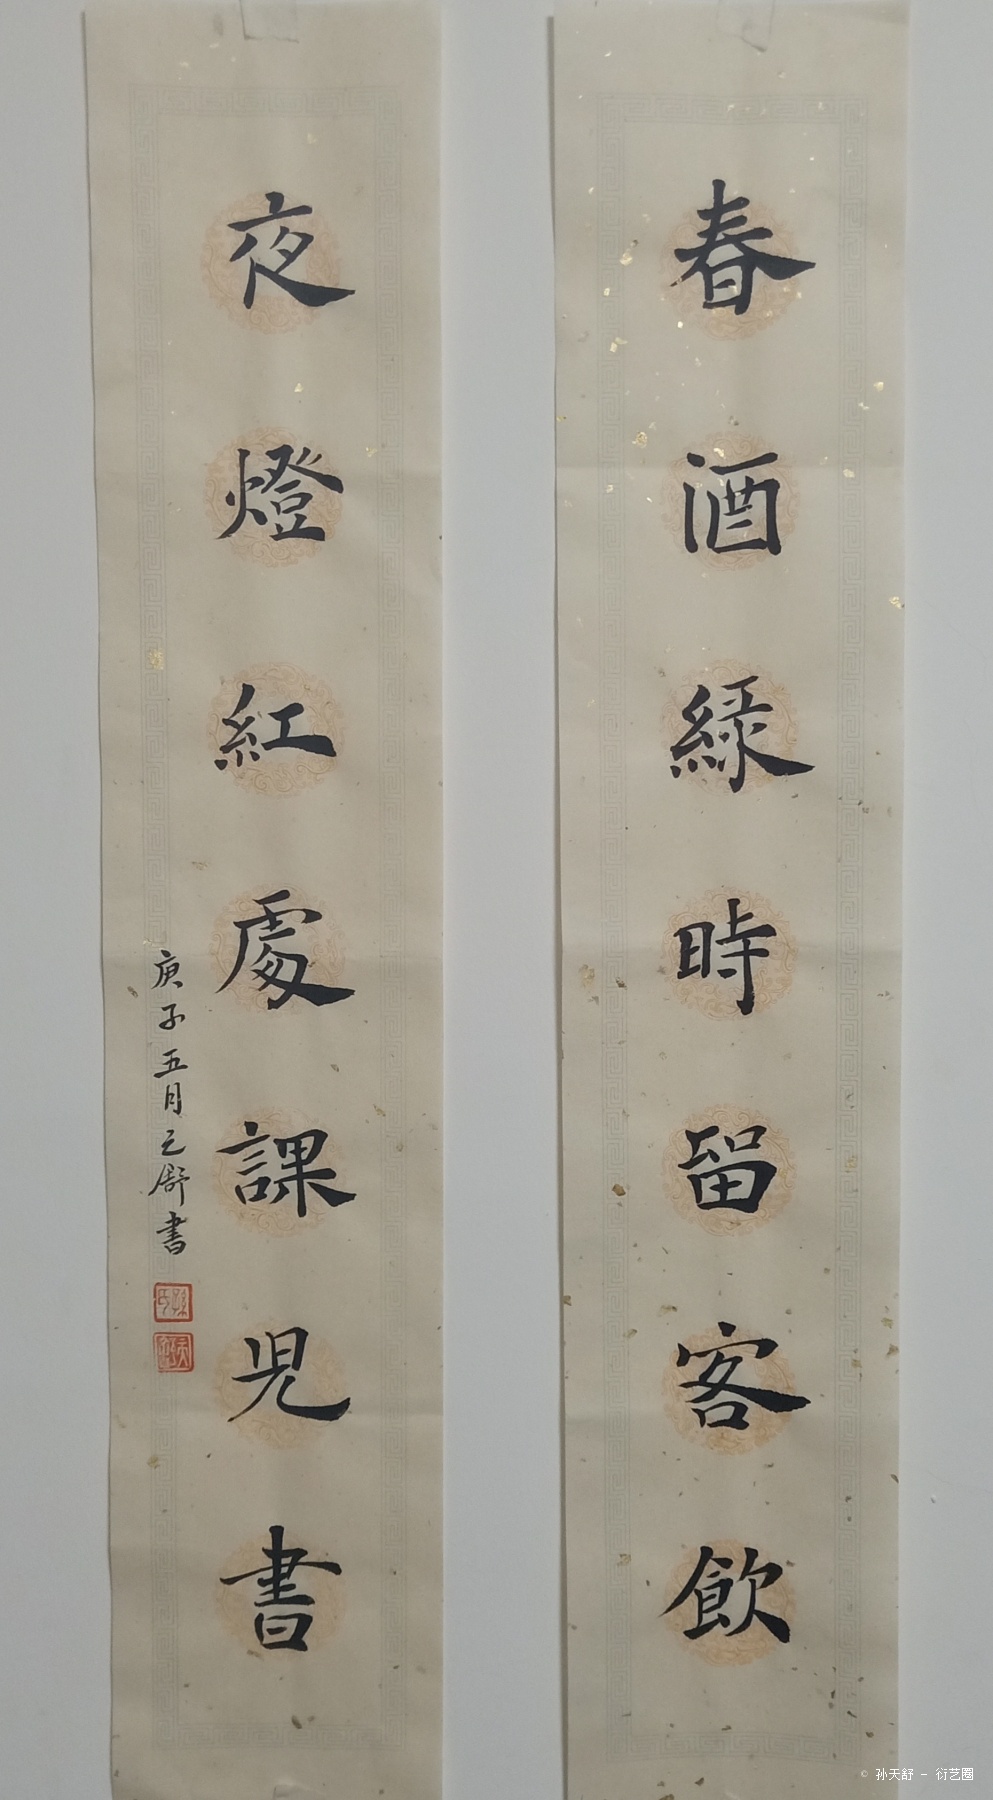 春酒綠時留客飲
夜燈紅處課兒書
庚子五月天舒書
孫氏
天舒
© 孙天舒 - 衍艺圈